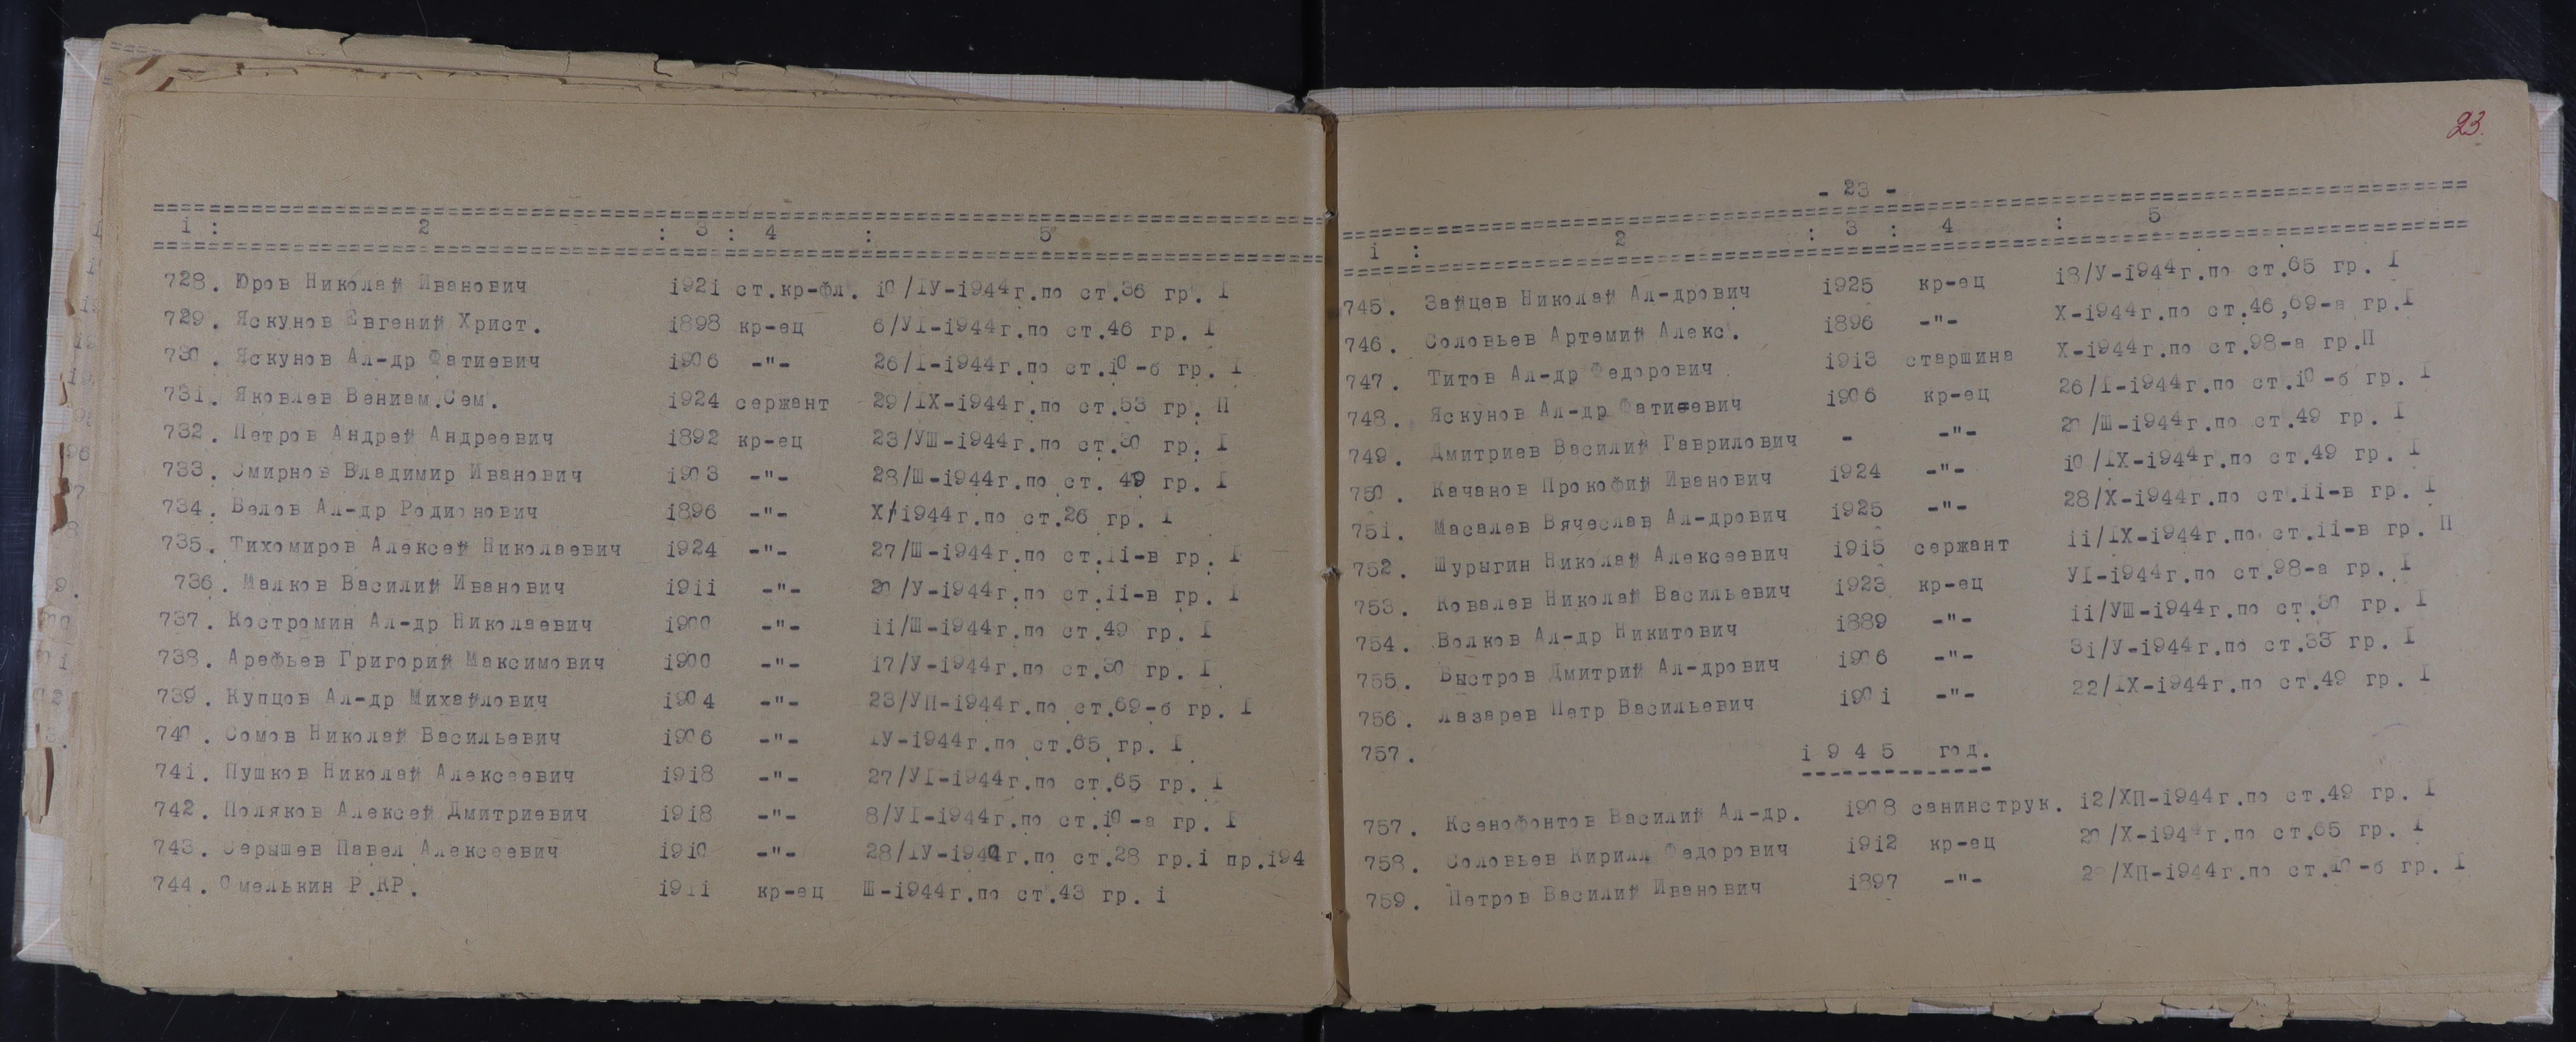 1 : 2 : 3 : 4 : 5
728. Юров Николай Иванович 1921 ст.кр-фл. 10/IУ-1944г.по ст.36 гр. I
729. Яскунов Евгений Христ. 1898 кр-ец 6/УI-1944г.по ст.46 гр. I
730. Яскунов Ал-др Фатиевич 1906 -"- 26/I-1944г.по ст.10-б гр. I
731. Яковлев Вениам.Сем. 1924 сержант 29/IХ-1944г.по ст.53 гр. П
732. Петров Андрей Андреевич 1892 кр-ец 23/УШ-1944г.по ст.30 гр. I
733. Смирнов Владимир Иванович 1903 -"- 28/Ш-1944г.по ст. 49 гр. I
734. Белов Ал-др Родионович 1896 -"- Х/1944г.по ст.26 гр. I
735. Тихомиров Алексей Николаевич 1924 -"- 27/Ш-1944г.по ст.11-в гр. I
736. Малков Василий Иванович 1911 -"- 20/У-1944г.по ст.11-в гр. I
737. Костромин Ал-др Николаевич 1900 -"- 11/Ш-1944г.по ст.49 гр. I
738. Арефьев Григорий Максимович 1900 -"- 17/У-1944г.по ст.30 гр. I
739. Купцов Ал-др Михайлович 1904 -"- 23/УП-1944г.по ст.69-б гр. I
740. Сомов Николай Васильевич 1906 -"- IУ-1944г.по ст.65 гр. I
741. Пушков Николай Алексеевич 1918 -"- 27/УI-1944г.по ст.65 гр. I
742. Поляков Алексей Дмитриевич 1918 -"- 8/УI-1944г.по ст.10-а гр. I
743. Серышев Павел Алексеевич 1910 -"- 28/IУ-194 г.по ст.28 гр.1 пр.194
744. Омелькин Р.КР. 1911 кр-ец Ш-1944г.по ст.43 гр. 1
23.
- 23 -
1 : 2 : 3 : 4 : 5
745. Зайцев Николай Ал-дрович 1925 кр-ец 18/У-1944г.по ст.65 гр. I
746. Соловьев Артемий Алекс. 1896 -"- Х-1944г.по ст.46,69-а гр.I
747. Титов Ал-др Федорович 1913 старшина Х-1944г.по ст.98-а гр.П
748. Яскунов Ал-др Фатиевич 1906 кр-ец 26/I-1944г.по ст.10-б гр. I
749. Дмитриев Василий Гаврилович - -"- 20/Ш-1944г.по ст.49 гр. I
750. Качанов Прокофий Иванович 1924 -"- 10/IХ-1944г.по ст.49 гр. I
751. Масалев Вячеслав Ал-дрович 1925 -"- 28/Х-1944г.по ст.11-в гр. I
752. Шурыгин Николай Алексеевич 1915 сержант 11/IХ-1944г.по ст.11-в гр. П
753. Ковалев Николай Васильевич 1923 кр-ец УI-1944г.по ст.98-а гр. I
754. Волков Ал-др Никитович 1889 -"- 11/УШ-1944г.по ст.30 гр. I
755. Быстров Дмитрий Ал-дрович 1906 -"- 31/У-1944г.по ст.33 гр. I
756. Лазарев Петр Васильевич 1901 -"- 22/IХ-1944г.по ст.49 гр. I
757. 1 9 4 5 год.
757. Ксенофонтов Василий Ал-др. 1908 санинструк. 12/ХП-1944г.по ст.49 гр. I
758. Соловьев Кирилл Федорович 1912 кр-ец 20/Х-1944г.по ст.65 гр. I
759. Петров Василий Иванович 1897 -"- /ХП-1944г.по ст.10-б гр. I